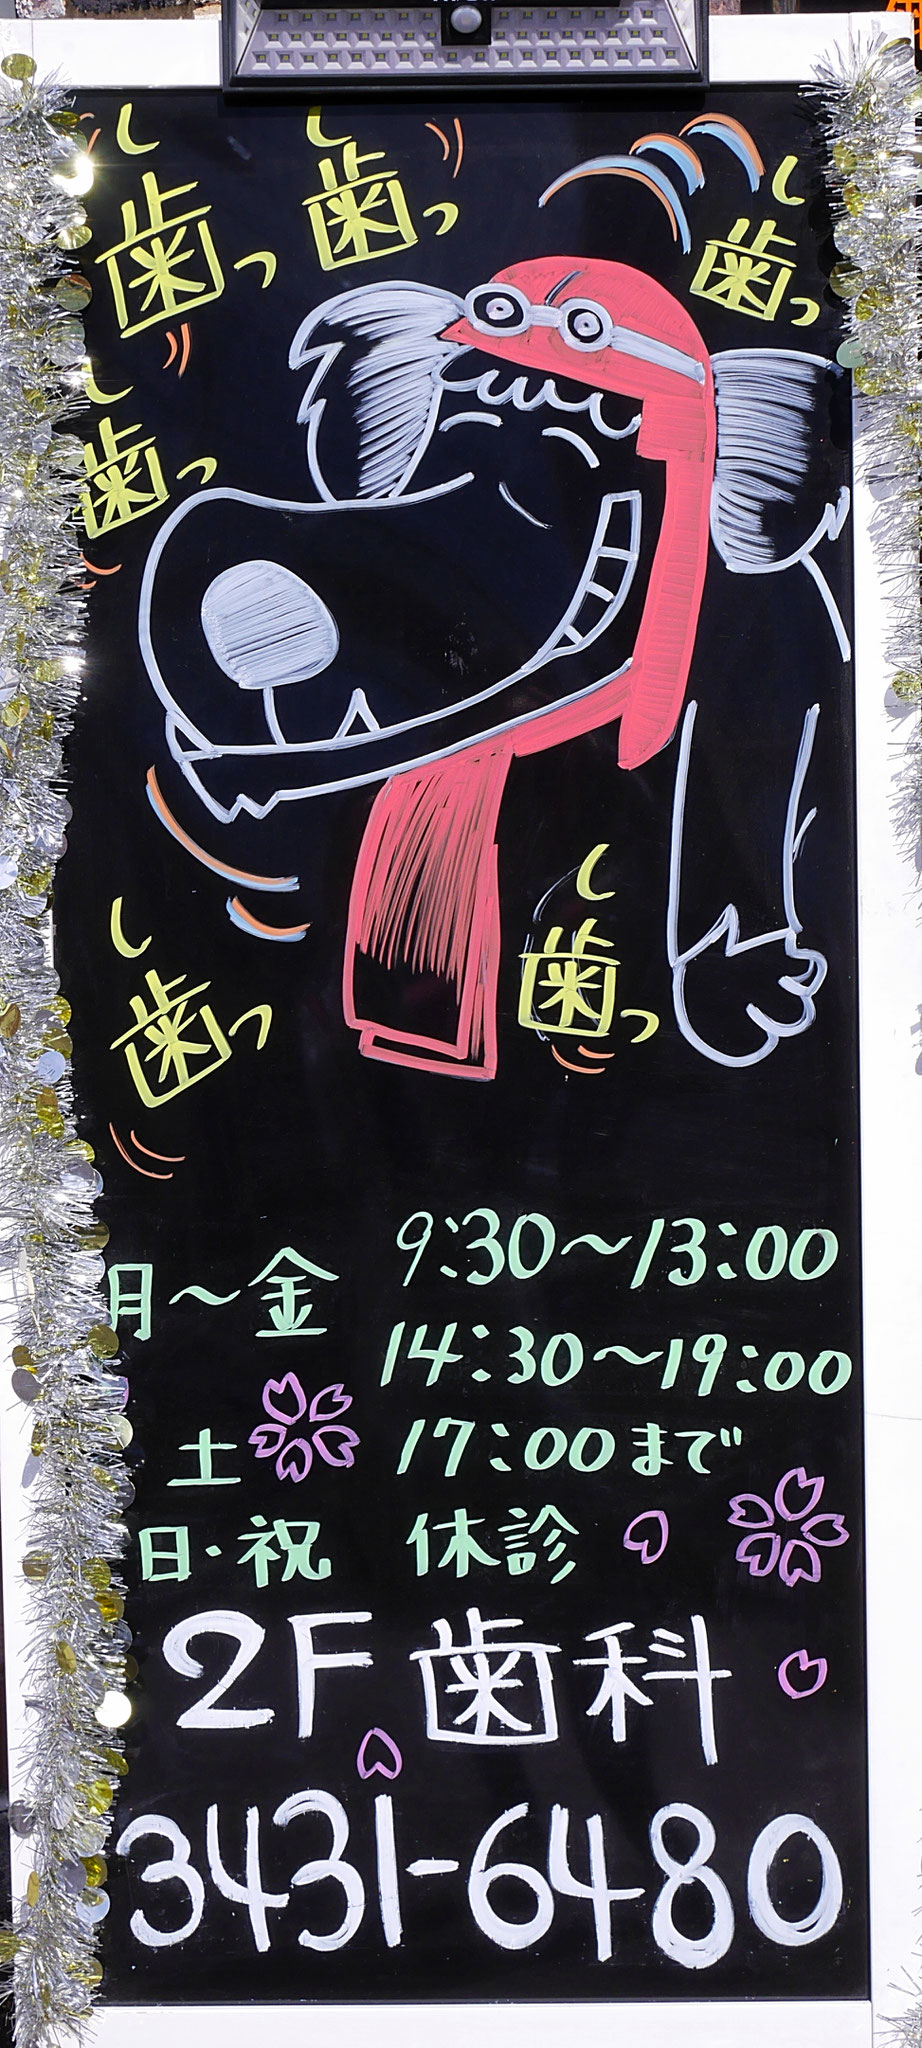 し歯っ
し歯っ
し歯っ
し歯っ
し歯っ
し歯っ
月～金 9:30～13:00
14:30～19:00
土 17:00まで
日・祝 休診
2F歯科
3431-6480